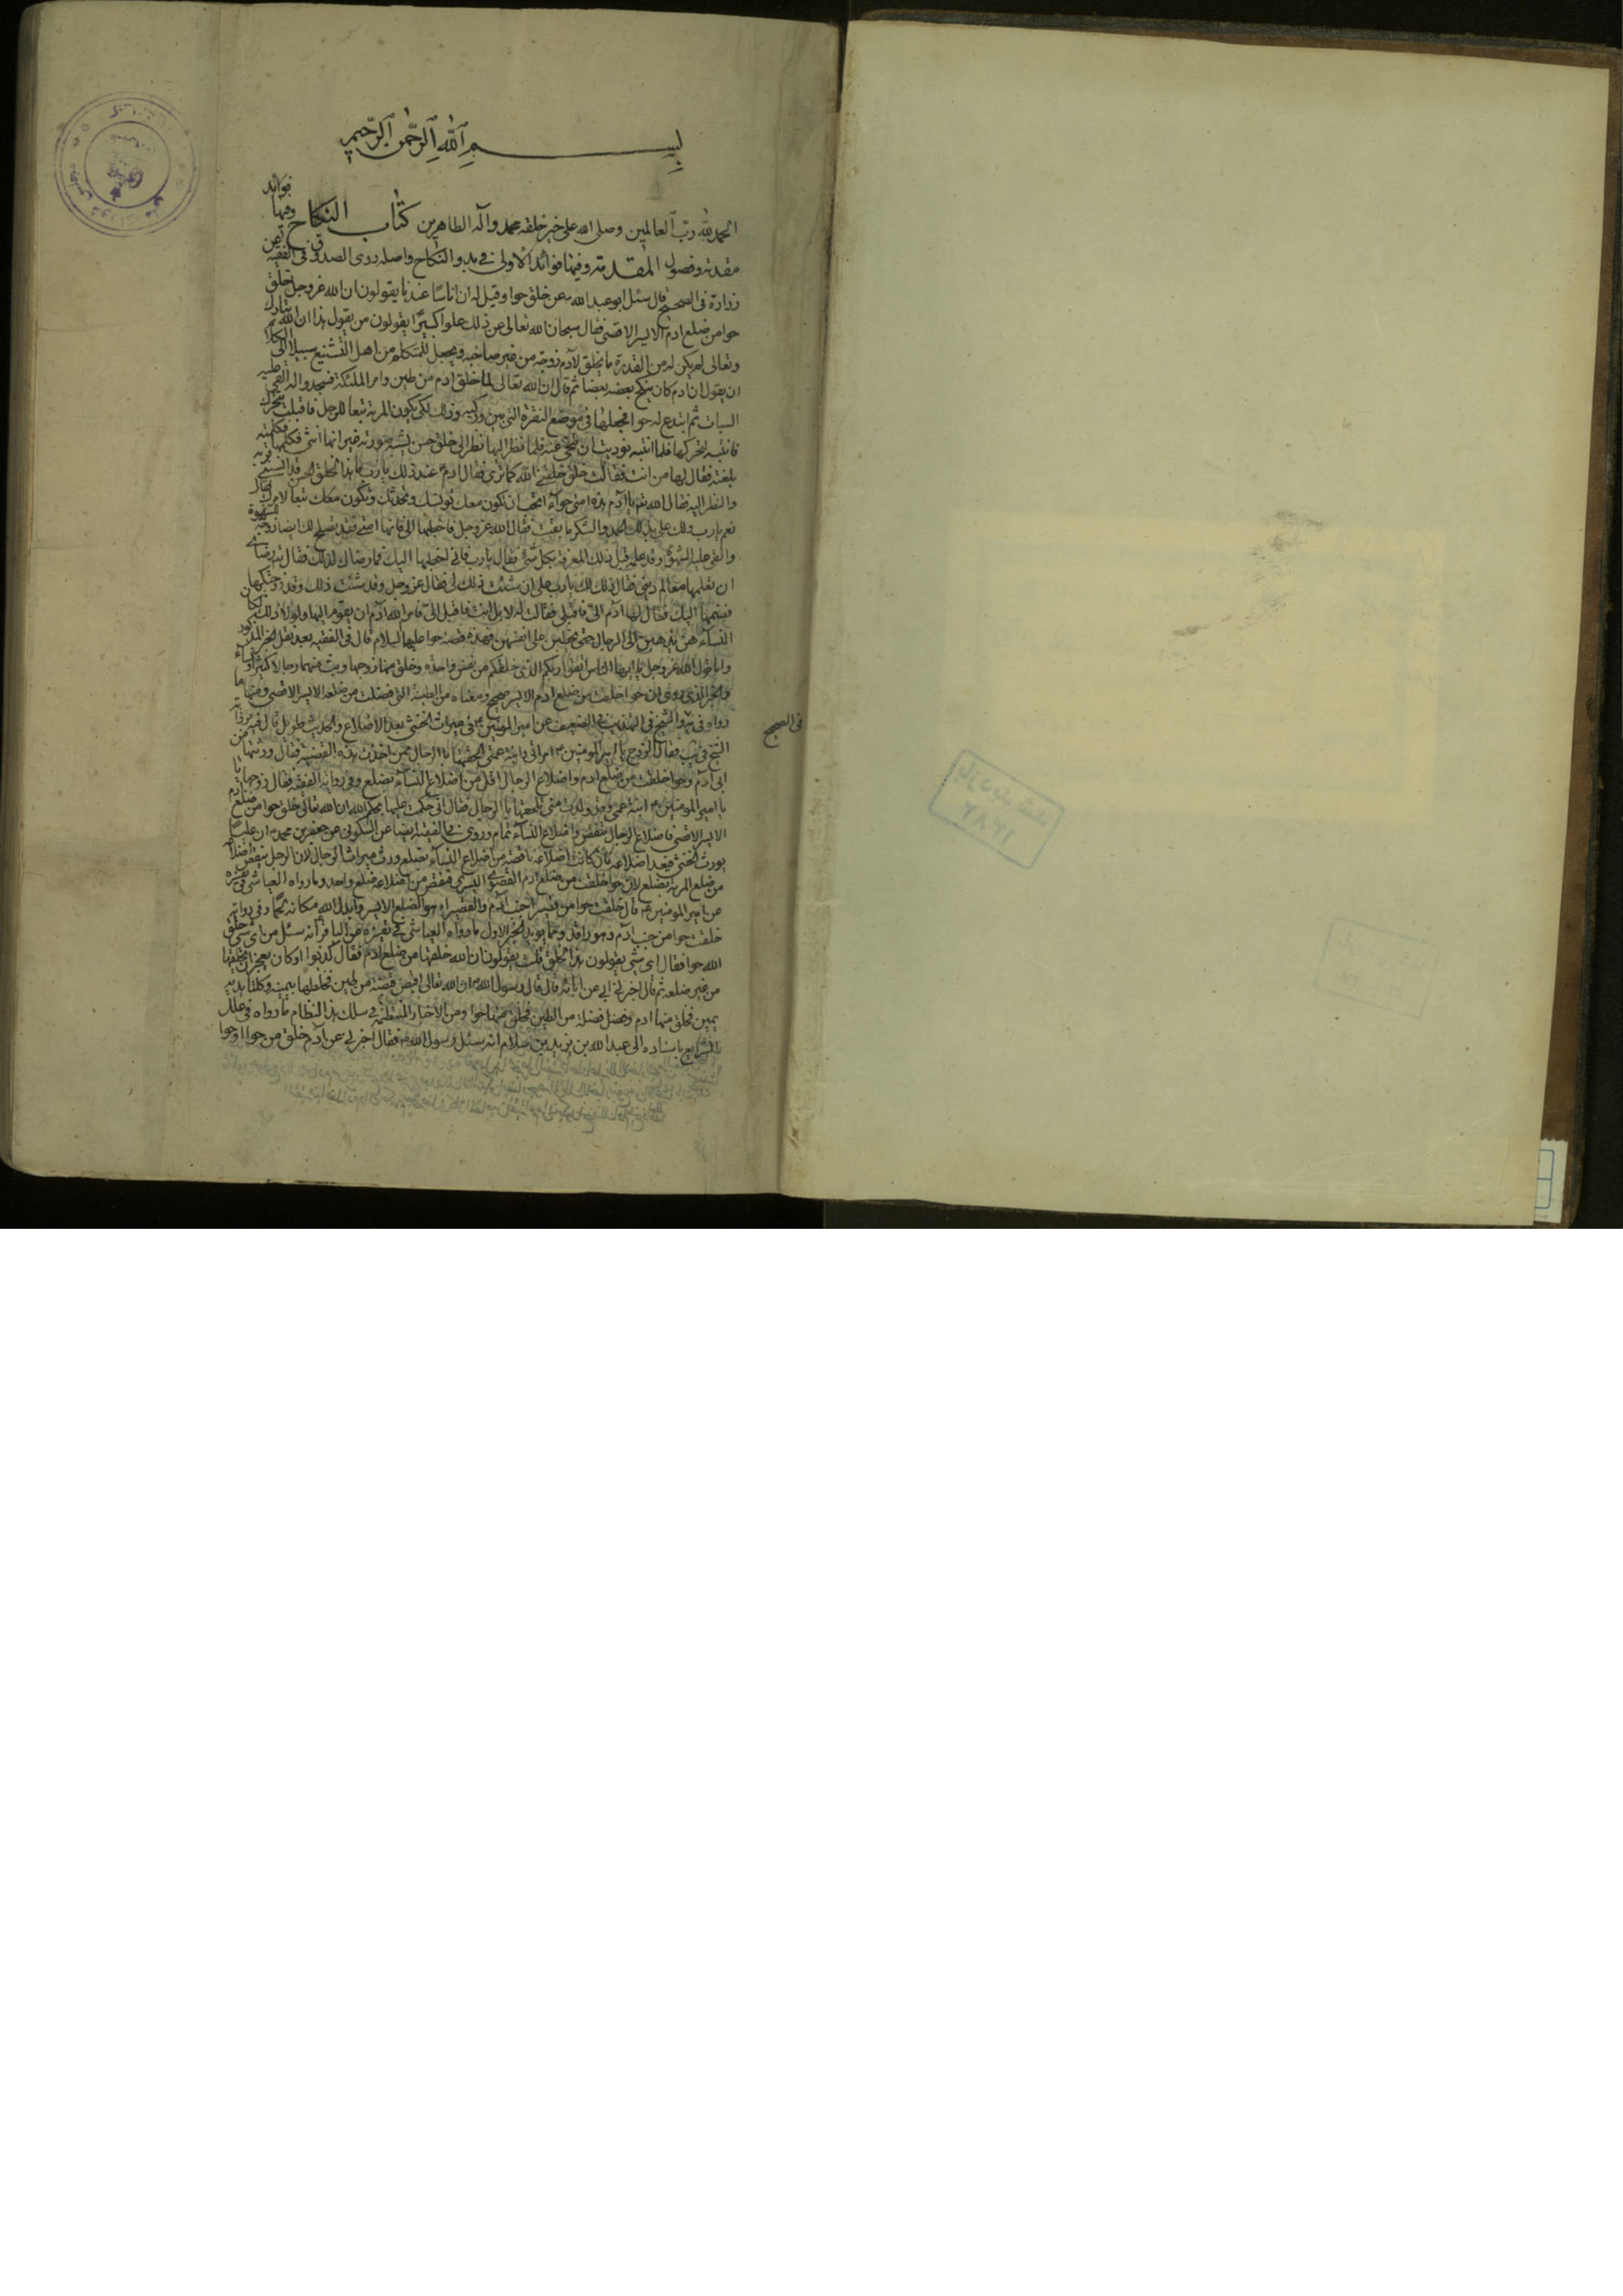 بسم الله الرحمن الرحيم
الحمد لله رب العالمين وصلى الله على خير خلقه محمد وآله الطاهرين كتاب النكاح وفيها فوائد
مقدمة وفصول المقدمة وفيها فوائد الاولى في بدو النكاح واصله روى الصدوق في الفقيه عن
زرارة في الصحيح قال سئل ابو عبد الله عن خلق حوا وقيل له ان اناسا عندنا يقولون ان الله عز وجل خلق
حوا من ضلع ادم الايسر الاقصى فقال سبحان الله تعالى عن ذلك علوا كبيرا يقولون من يقول هذا ان الله تبارك
وتعالى لم يكن له من القدرة ما يخلق لآدم زوجة من غير ضلعه ويجعل للمتكلم من اهل التشنيع سبيلا الى الكلام
ان يقول ان ادم كان ينكح بعضه بعضا ثم قال ان الله تعالى لما خلق ادم من طين وامر الملئكة فسجدوا له القى عليه
السبات ثم ابتدع له حوا فجعلها في موضع النقرة التي بين وركيه وذلك لكى يكون المرئة تبعا للرجل فاقبلت تتحرك
فانتبه لتحركها فلما انتبه نوديت ان تنحى عنه فلما نظر اليها نظر الى خلق حسن يشبه صورته غير انها انثى فكلمها فكلمته
بلغته فقال لها من انت فقالت خلق خلقني الله كما ترى فقال ادم عند ذلك يا رب ما هذا الخلق الحسن قد انسني قربه
والنظر اليه فقال الله يا آدم هذه امتي حوآء اتحب ان تكون معك تونسك وتحدثك وتكون معك تبعا لامرك فقال
نعم يا رب ولك على بذلك الحمد والشكر ما بقيت فقال الله عز وجل فاخطبها الى فانها امتي وقد تصلح لك ايضا زوجة للشهوة
والقى عليه الشهوة وقد علمه قبل ذلك المعرفة بكل شئ فقال يا رب فاني اخطبها اليك فما رضاك لذلك فقال رضاى
ان تعلمها معالم ديني فقال ذلك لك يا رب على ان شئت ذلك لي فقال عز وجل وقد شئت ذلك وقد زوجتكها
فضمها اليك فقال لها آدم الى فاقبلي فقالت له بل انت فاقبل الى فامر الله آدم ان يقوم اليها ولولا ذلك لكان
النسآء هن يذهبن الى الرجال حتى يخطبن على انفسهن فهذه قصة حوا عليها السلام قال في الفقيه بعد نقل الخبر المذكور
واما قول الله عز وجل يا ايها الناس اتقوا ربكم الذي خلقكم من نفس واحدة وخلق منها زوجها وبث منهما رجالا كثيرا ونساء
والخبر الذي روى ان حوا خلقت من ضلع ادم الايسر صحيح ومعناه من الطينة التي فضلت من ضلعه الايسر الاقصى ومنها ما
رواه في والشيخ في التهذيب في الضعيف عن امير المومنين في ميراث الخنثى بعد الاضلاع والحديث طويل قال فيه
في الصحيح
فقال الزوج يا امير المومنين امراتي وابنة عمي الحقتها بالرجال ممن اخذت هذه القضية فقال ورثتها من
ابي ادم وحوا خلقت من ضلع ادم واضلاع الرجال اقل من اضلاع النسآء بضلع وفي رواية الفقيه فقال زوجها يا
يا امير المومنين ابنة عمي وقد ولدت مني تلحقها بالرجال فقال اني حكمت عليها بحكم الله ان الله تعالى خلق حوا من ضلع ادم
الايسر الاقصى فاضلاع الرجال تنقص واضلاع النسآء تمام وروى في الفقيه ايضا عن السكوني عن جعفر بن محمد ان عليا
يورث الخنثى فيعد اضلاعه فان كانت اضلاعه ناقصة من اضلاع النسآء بضلع ورث ميراث الرجال لان الرجل تنقص اضلاعه
من ضلع المرئة بضلع لان حوا خلقت من ضلع ادم القصوى اليسرى فنقص من اضلاعه ضلع واحد وما رواه العياشي في تفسيره
عن امير المومنين قال خلقت حوا من قصيرا جنب آدم والقصيراء هو الضلع الايسر وابدل الله مكانه لحما وفي رواية
خلقت حوا من جنب آدم وهو راقد ومما يويد الخبر الاول ما رواه العياشي في تفسيره عن الباقر انه سئل من اى شئ خلق
الله حوا فقال اى شئ يقولون هذا الخلق قلت يقولون ان الله خلقها من ضلع ادم فقال كذبوا اوكان يعجز ان يخلقها
من غير ضلعه ثم قال اخبرني ابي عن ابائه قال قال رسول الله ان الله تعالى قبض قبضة من طين فخلطها بيمينه وكلتا يديه
يمين فخلق منها ادم وفضل فضلة من الطين فخلق منها حوا ومن الاخبار المنتظمة في سلك هذا النظام ما رواه في علل
الشرايع باسناده الى عبد الله بن يزيد بن سلام انه سئل رسول الله فقال اخبرني عن آدم خلق من حوا او حوا